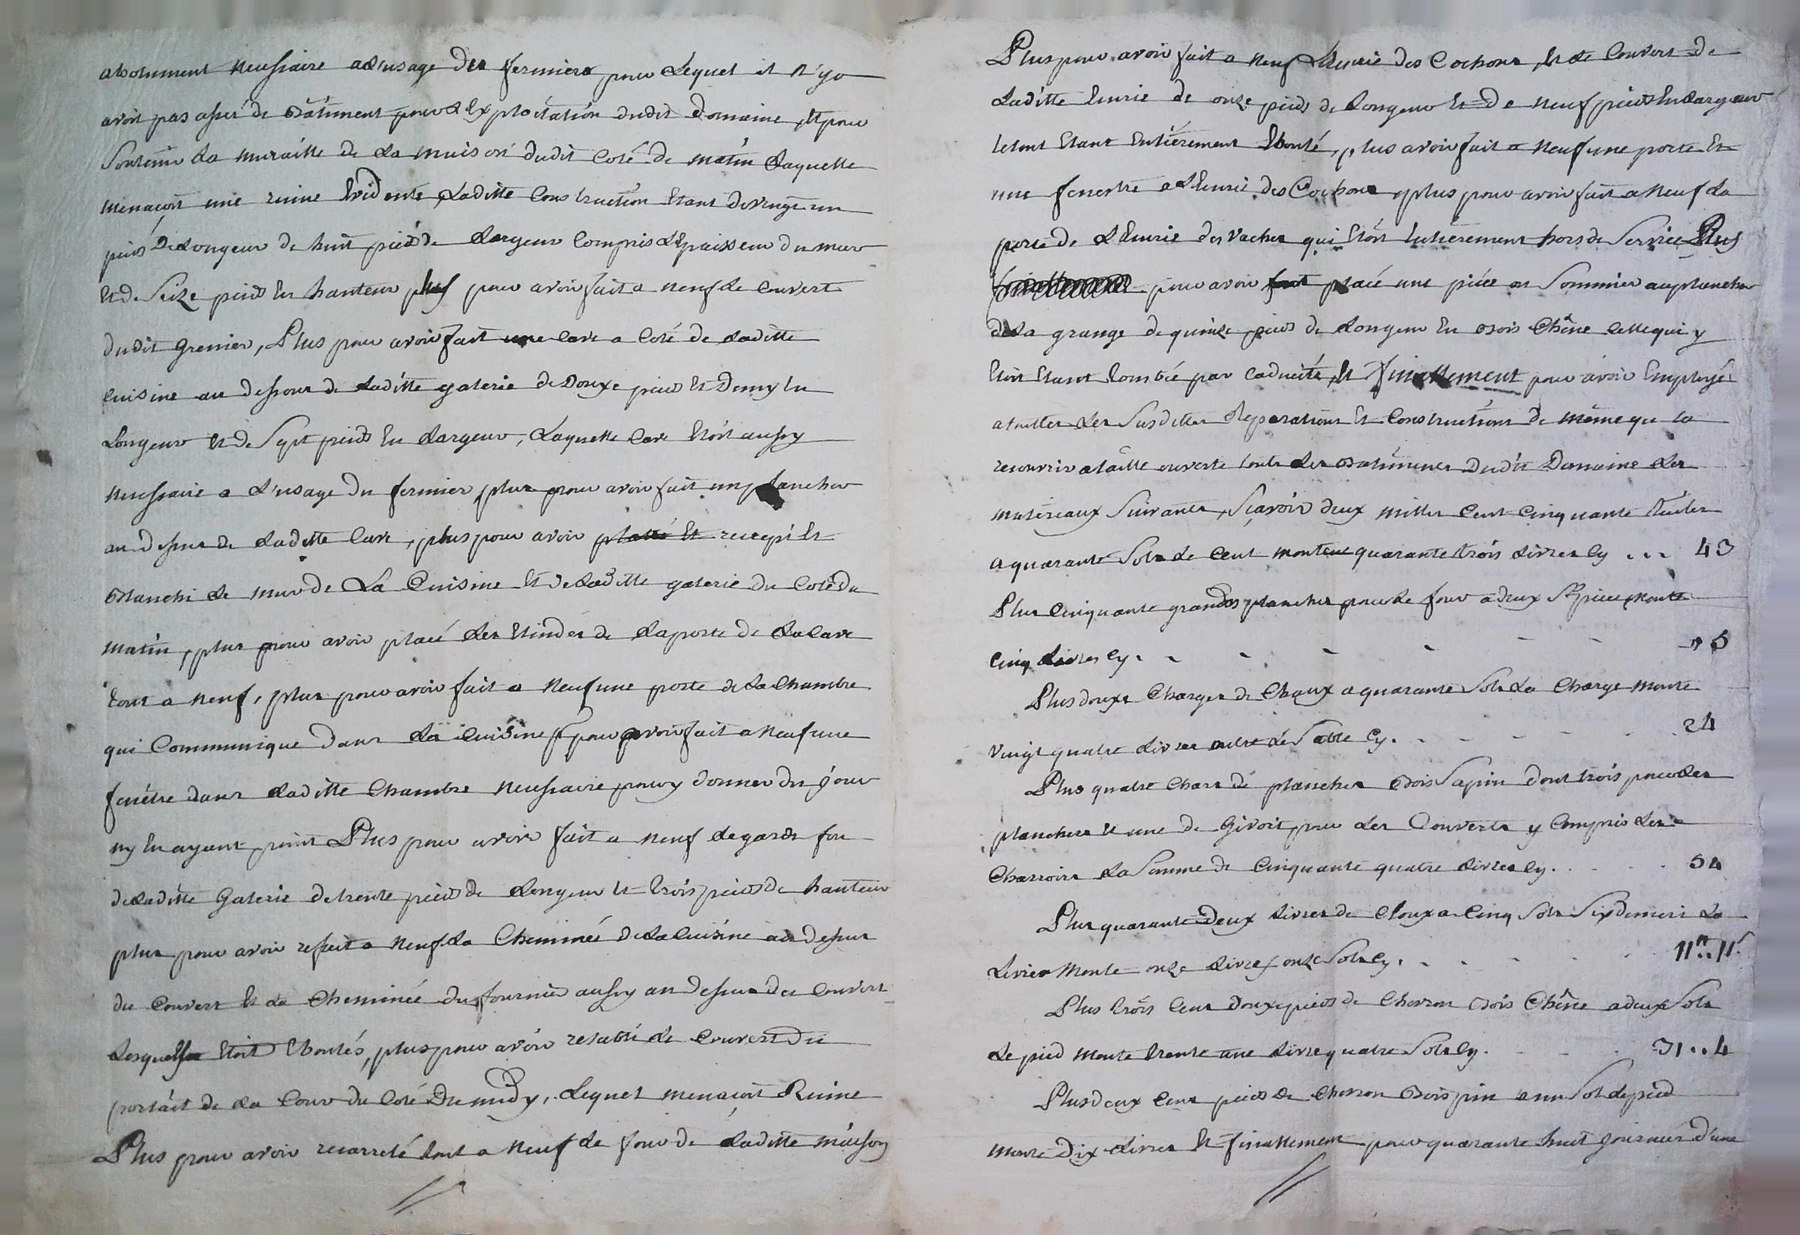 absolument necessiaire a l'usage des fermiers pour lequel il n'y a
avoit pas assés de Batiment pour l'Exploitation dudit Domaine, Et pour
Soutenir la muraille de la maison dudit coté de matin laquelle
menacoit une ruine Evidente, Laditte Construction Etant de vingt un
pieds de Longeur de huit pieds de Largeur compris l'Epaisseur du mur
Et de Seize pieds En hauteur plus pour avoir fait a neuf le couvert
dudit Grenier, Plus pour avoir fait une cave a coté de laditte
cuisine au dessous de laditte galerie de Douze pieds Et Demy En
Longeur Et de Sept pieds En Largeur, Laquelle cave Etoit aussy
necessaire a l'usage du fermier, plus pour avoir fait un plancher
au dessus de laditte cave, plus pour avoir recrepi Et
Blanchi le mur de La Cuisine Et de laditte galerie du coté du
matin, plus pour avoir placé les de la porte de la cave
tout a neuf, plus pour avoir fait a neuf une porte de la chambre
qui Communique dans la cuisine pour avoir fait a neuf une
fenêtre dans laditte Chambre necessaire pour y donner du jour
ny En ayant point Plus pour avoir fait a neuf le garde fou
de laditte Galerie de trente pieds de Longeur Et trois pieds de hauteur
plus pour avoir refait a neuf la Cheminée de la cuisine au dessus
du couvert Et la Cheminée du fournier aussy au dessus des couvert
Lesquels Etoit Eboulés, plus pour avoir retabli le couvert du
portait de la Cour du Coté Du midy, Lequel menacoit Ruine
Plus pour avoir recarrelé tout a neuf le four de laditte maison
Plus pour avoir fait a neuf L'Ecurie des Cochons, Et le Couvert de
Laditte Ecurie de onze pieds de Longeur Et De neuf pieds En Largeur
le tout Etant Entièrement Eboulé, plus avoir fait a neuf une porte Et
une fenestre a l'Ecurie des Cochons, plus pour avoir fait a neuf la
porte de L'Ecurie des Vaches qui Etoit Entierement hors de Service Plus
pour avoir placé une pièce ou Sommier au plancher
de la grange de quinze pieds de Longeur En Bois Chêne celle qui y
Etoit Etant tombée par caducité, Et Finallement pour avoir Employé
a touttes les Susdittes Reparations Et Constructions De même que la
recouvrir a taille ouverte touts les Batimens Dudit Domaine les
matereaux Suivants, Sçavoir deux milles Cent Cinquante tuiles
a quarante Sols le cent monte quarante trois Livres Cy ... 43
Plus Cinquante grandes planches pour le four a deux S. piece monte
Cinq Livres Cy. - - - - - " 5
Plus douze Charges de Chaux a quarante Sols La Charge monte
Vingt quatre Livres outre le Sable Cy. - - - - - 24
Plus quatre Chars de planches Bois Sapin dont trois pour les
planchers et une de pour les Couverts y Compris les
Charroirs La Somme de Cinquante quatre Livres Cy. . . . 54
Plus quarante Deux Livres de Cloux a Cinq Sols Six Deniers La
Livres Monte onze Livres onze Sols Cy. - - - - - 11tt..11s
Plus trois Cent Douze pieds de Chevron Bois Chêne a deux Sols
Le pied Monte trente une Livre quatre Sols Cy. - - - 31..4
Plus deux Cent pieds de Chevron Bois pin a un Sol le pied
monte Dix Livres Et finallement pour quarante huit journées d'une